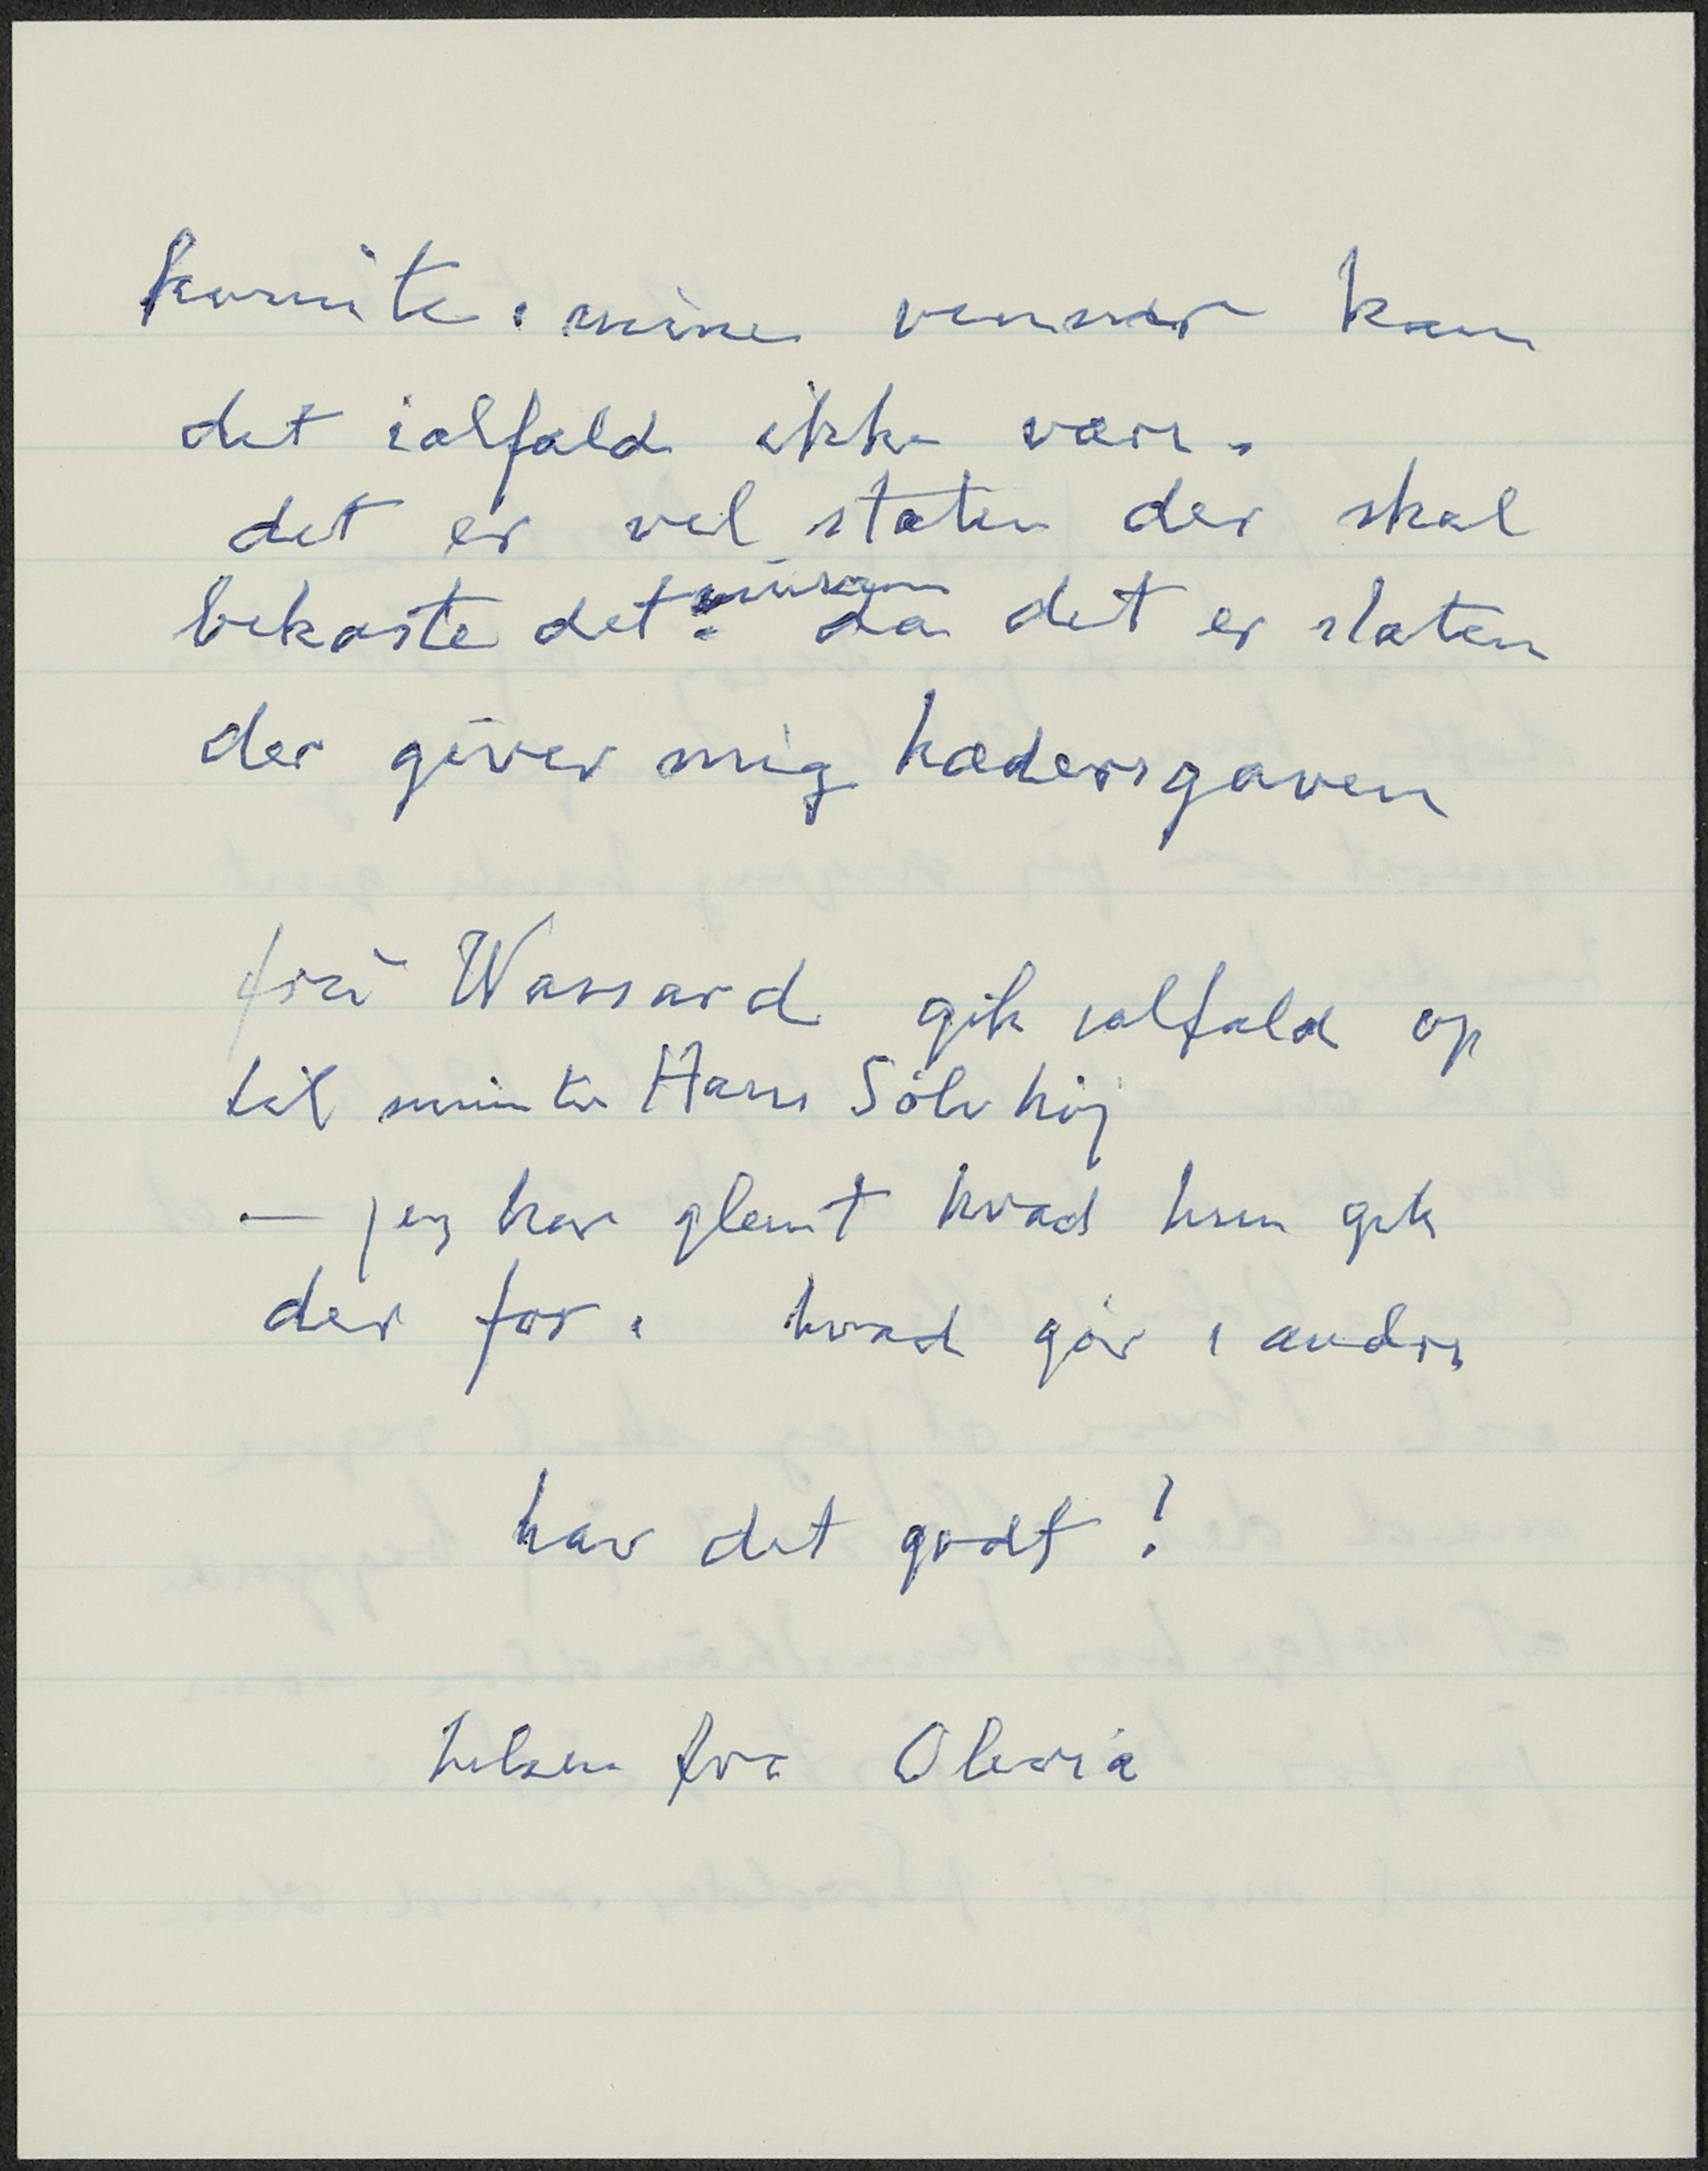 komite. mine venner kan
det ialfald ikke være.
det er vel staten der skal
bekoste det? da det er staten
der giver mig hædersgaven
frü Wassard gik ialfald op
til minister Hans Sölvhöj
— jeg har glemt hvad hun gik
der for. hvad gör i andre
hav det godt!
hilsen fra Olivia